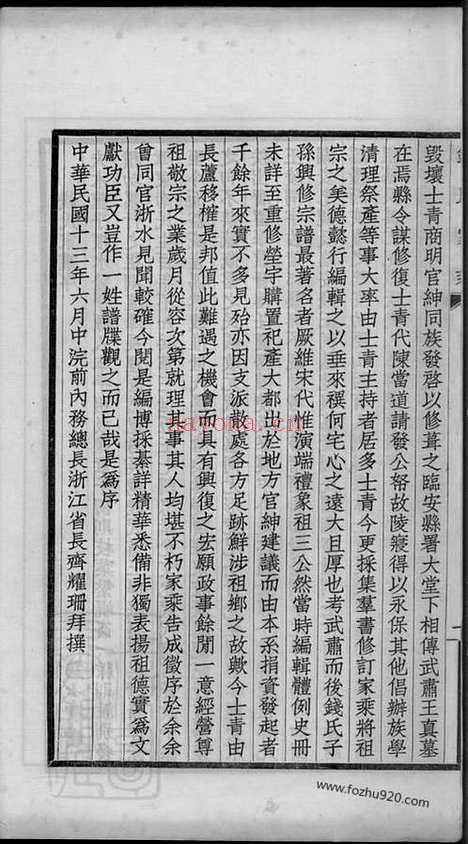 毀壞士青商明官紳同族發啓以修葺之臨安縣署大堂下相傳武肅王真墓
在焉縣令謀修復士青代陳當道請發公帑故陵寢得以永保其他倡辦族學
清理祭產等事大率由士青主持者居多士青今更採集羣書修訂家乘將祖
宗之美德懿行編輯之以垂來禩何宅心之遠大且厚也考武肅而後錢氏子
孫興修宗譜最著名者厥維宋代惟演端禮象祖三公然當時編輯體例史冊
未詳至重修塋宇購置祀產大都出於地方官紳建議而由本系捐資發起者
千餘年來實不多見殆亦因支派散處各方足跡鮮涉祖鄉之故歟今士青由
長蘆移權是邦值此難遇之機會而具有興復之宏願政事餘閒一意經營尊
祖敬宗之業歲月從容次第就理其事其人均堪不朽家乘告成徵序於余余
曾同官浙水見聞較確今閱是編博採綦詳精華悉備非獨表揚祖德實爲文
獻功臣又豈作一姓譜牒觀之而已哉是爲序
中華民國十三年六月中浣前內務總長浙江省長齊耀珊拜撰
nayona.cn
www.fozhu920.com